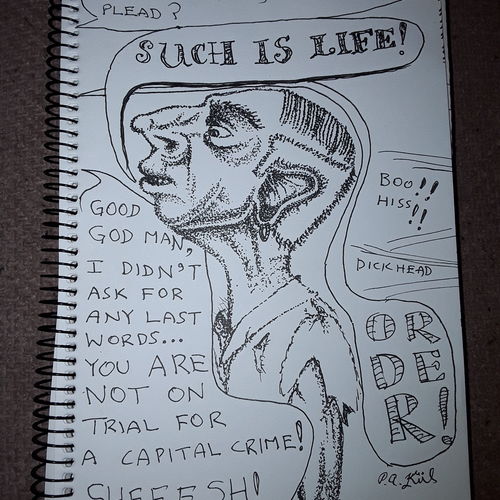 PLEAD?
SUCH IS LIFE!
GOOD
GOD MAN,
I DIDN'T
ASK FOR
ANY LAST
WORDS...
YOU ARE
NOT ON
TRIAL FOR
A CAPITAL CRIME!
SHEEESH!
BOO!!
HISS!!
DICKHEAD
OR
DE
R!